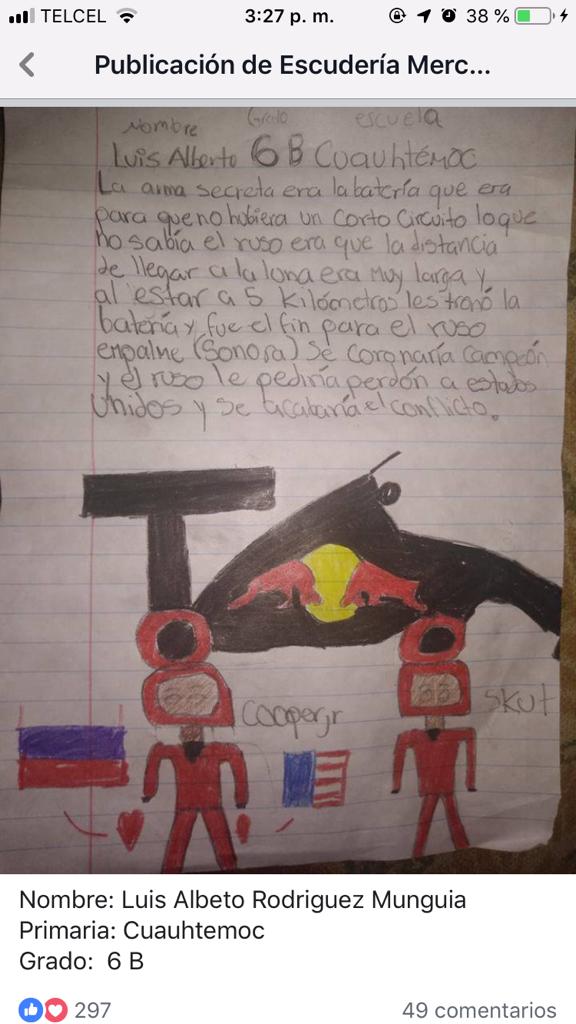 TELCEL 3:27 p. m. 38 %
Publicación de Escudería Merc...
Nombre Grado escuela
Luis Alberto 6 B Cuauhtémoc
La arma secreta era la batería que era
para que no hubiera un corto circuito lo que
no sabía el ruso era que la distancia
de llegar a la lona era muy larga y
al estar a 5 kilómetros les tronó la
batería y fue el fin para el ruso
empalme (Sonora) se coronaría campeón
y el ruso le pediría perdón a estados
Unidos y se acabaría el conflicto.
Cooper jr
Skut
Nombre: Luis Albeto Rodriguez Munguia
Primaria: Cuauhtemoc
Grado: 6 B
297 49 comentarios